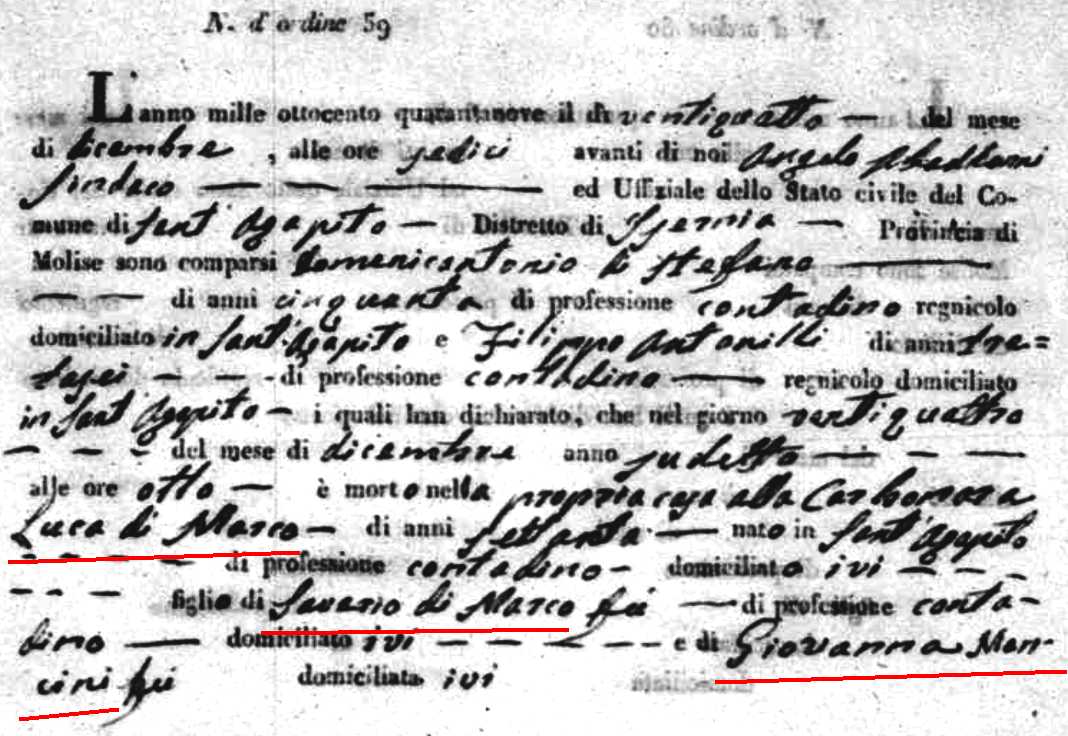 N. d'ordine 59
L'anno mille ottocento quarantanove il dì ventiquattro — del mese
di dicembre , alle ore sedici avanti di noi Angelo
Sindaco — — — ed Uffiziale dello Stato civile del Co-
mune di Sant'Agapito — Distretto di Isernia — Provincia di
Molise sono comparsi Domenicantonio di Stefano —
— — di anni cinquanta di professione contadino regnicolo
domiciliato in Sant'Agapito e Filippo Antonilli di anni tre=
tasei — — - di professione contadino — regnicolo domiciliato
in Sant'Agapito — i quali han dichiarato, che nel giorno ventiquattro
— — - del mese di dicembre anno sudetto — — —
alle ore otto — è morto nella propria casa alla Carbonara
Luca di Marco — di anni settanta — nato in Sant'Agapito
- — — — di professione contadino - domiciliato ivi — - -
- - — figlio di Saverio di Marco fu — di professione conta-
dino — domiciliato ivi — — — — - - e di Giovanna Man-
cini fu domiciliata ivi